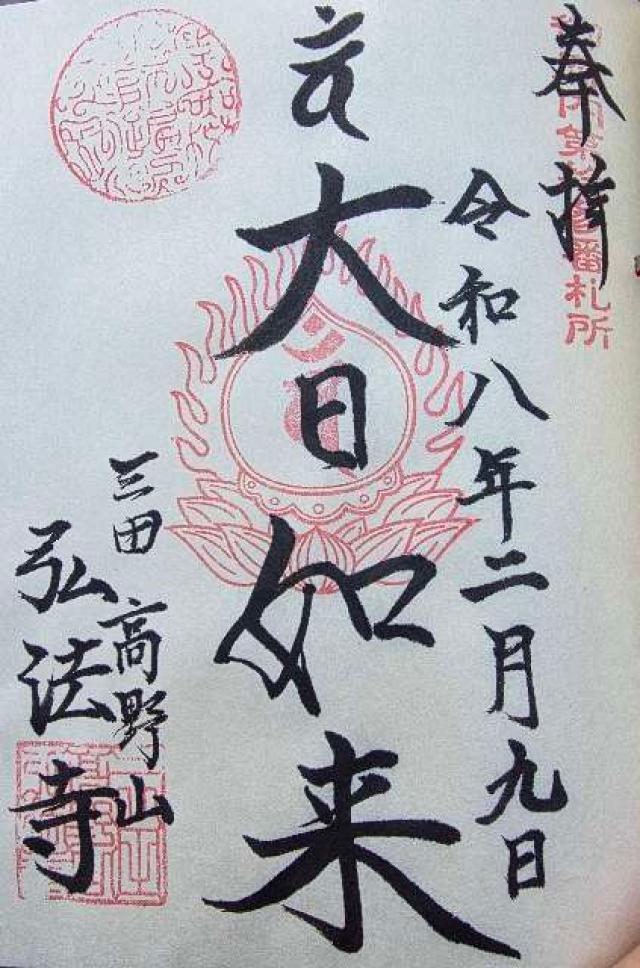 奉拝
令和八年二月九日
大日如来
三田 高野山
弘法寺
番札所